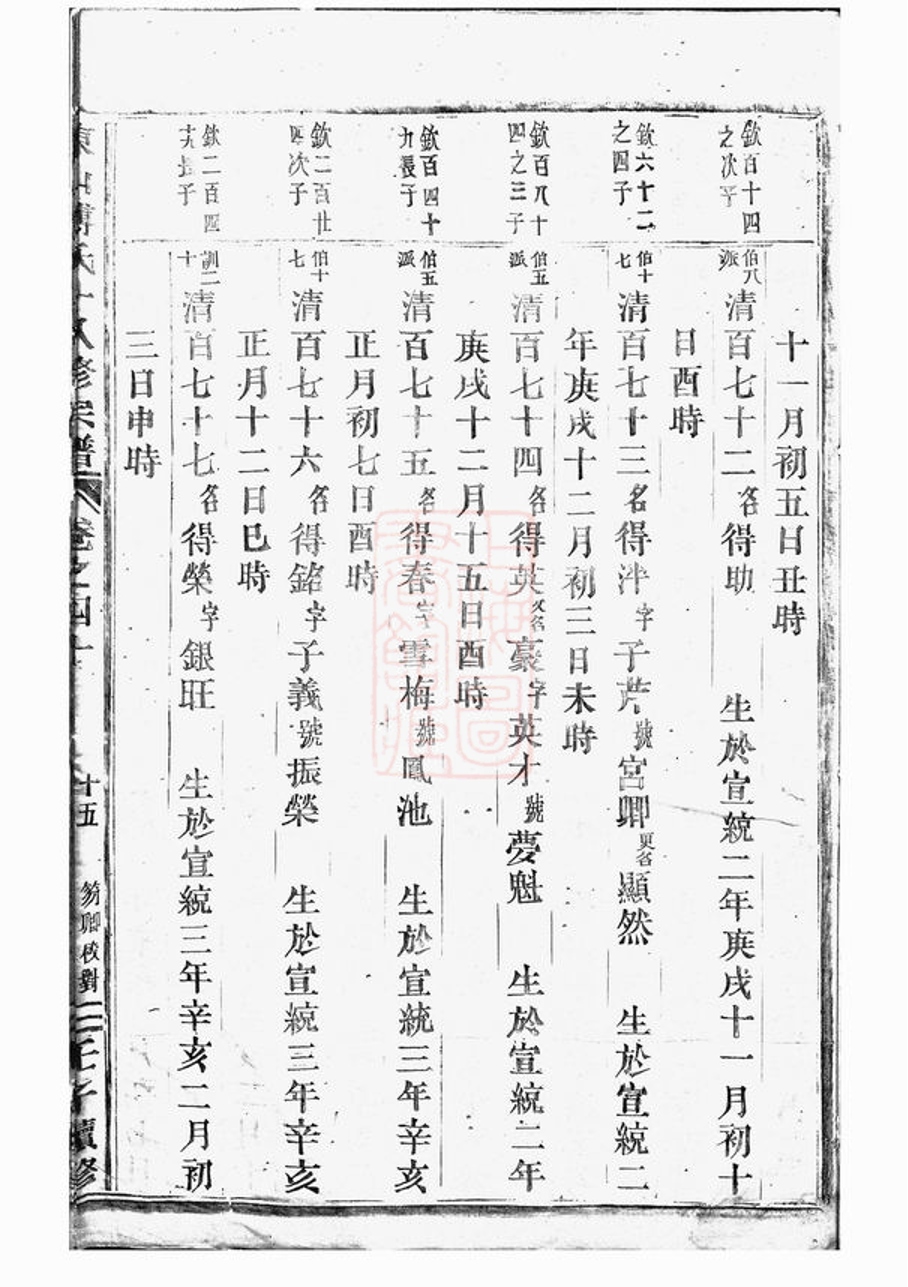 十一月初五日丑時
欽百十四
之次子
伯八
派
清百七十二名得助 生於宣統二年庚戌十一月初十
日酉時
欽六十二
之四子
伯十
七
清百七十三名得泮字子芹號宮卿更名顯然 生於宣統二
年庚戌十二月初三日未時
欽百八十
四之三子
伯五
派
清百七十四名得英又名豪字英才號夢魁 生於宣統二年
庚戌十二月十五日酉時
欽百四十
九長子
伯五
派
清百七十五名得春字雪梅號鳳池 生於宣統三年辛亥
正月初七日酉時
欽二百廿
四次子
伯十
七
清百七十六名得銘字子義號振榮 生於宣統三年辛亥
正月十二日巳時
欽二百四
長子
訓二
十
清百七十七名得榮字銀旺 生於宣統三年辛亥二月初
三日申時
傅氏十八修宗譜 卷之四十 十五 卿校對 壬子續修